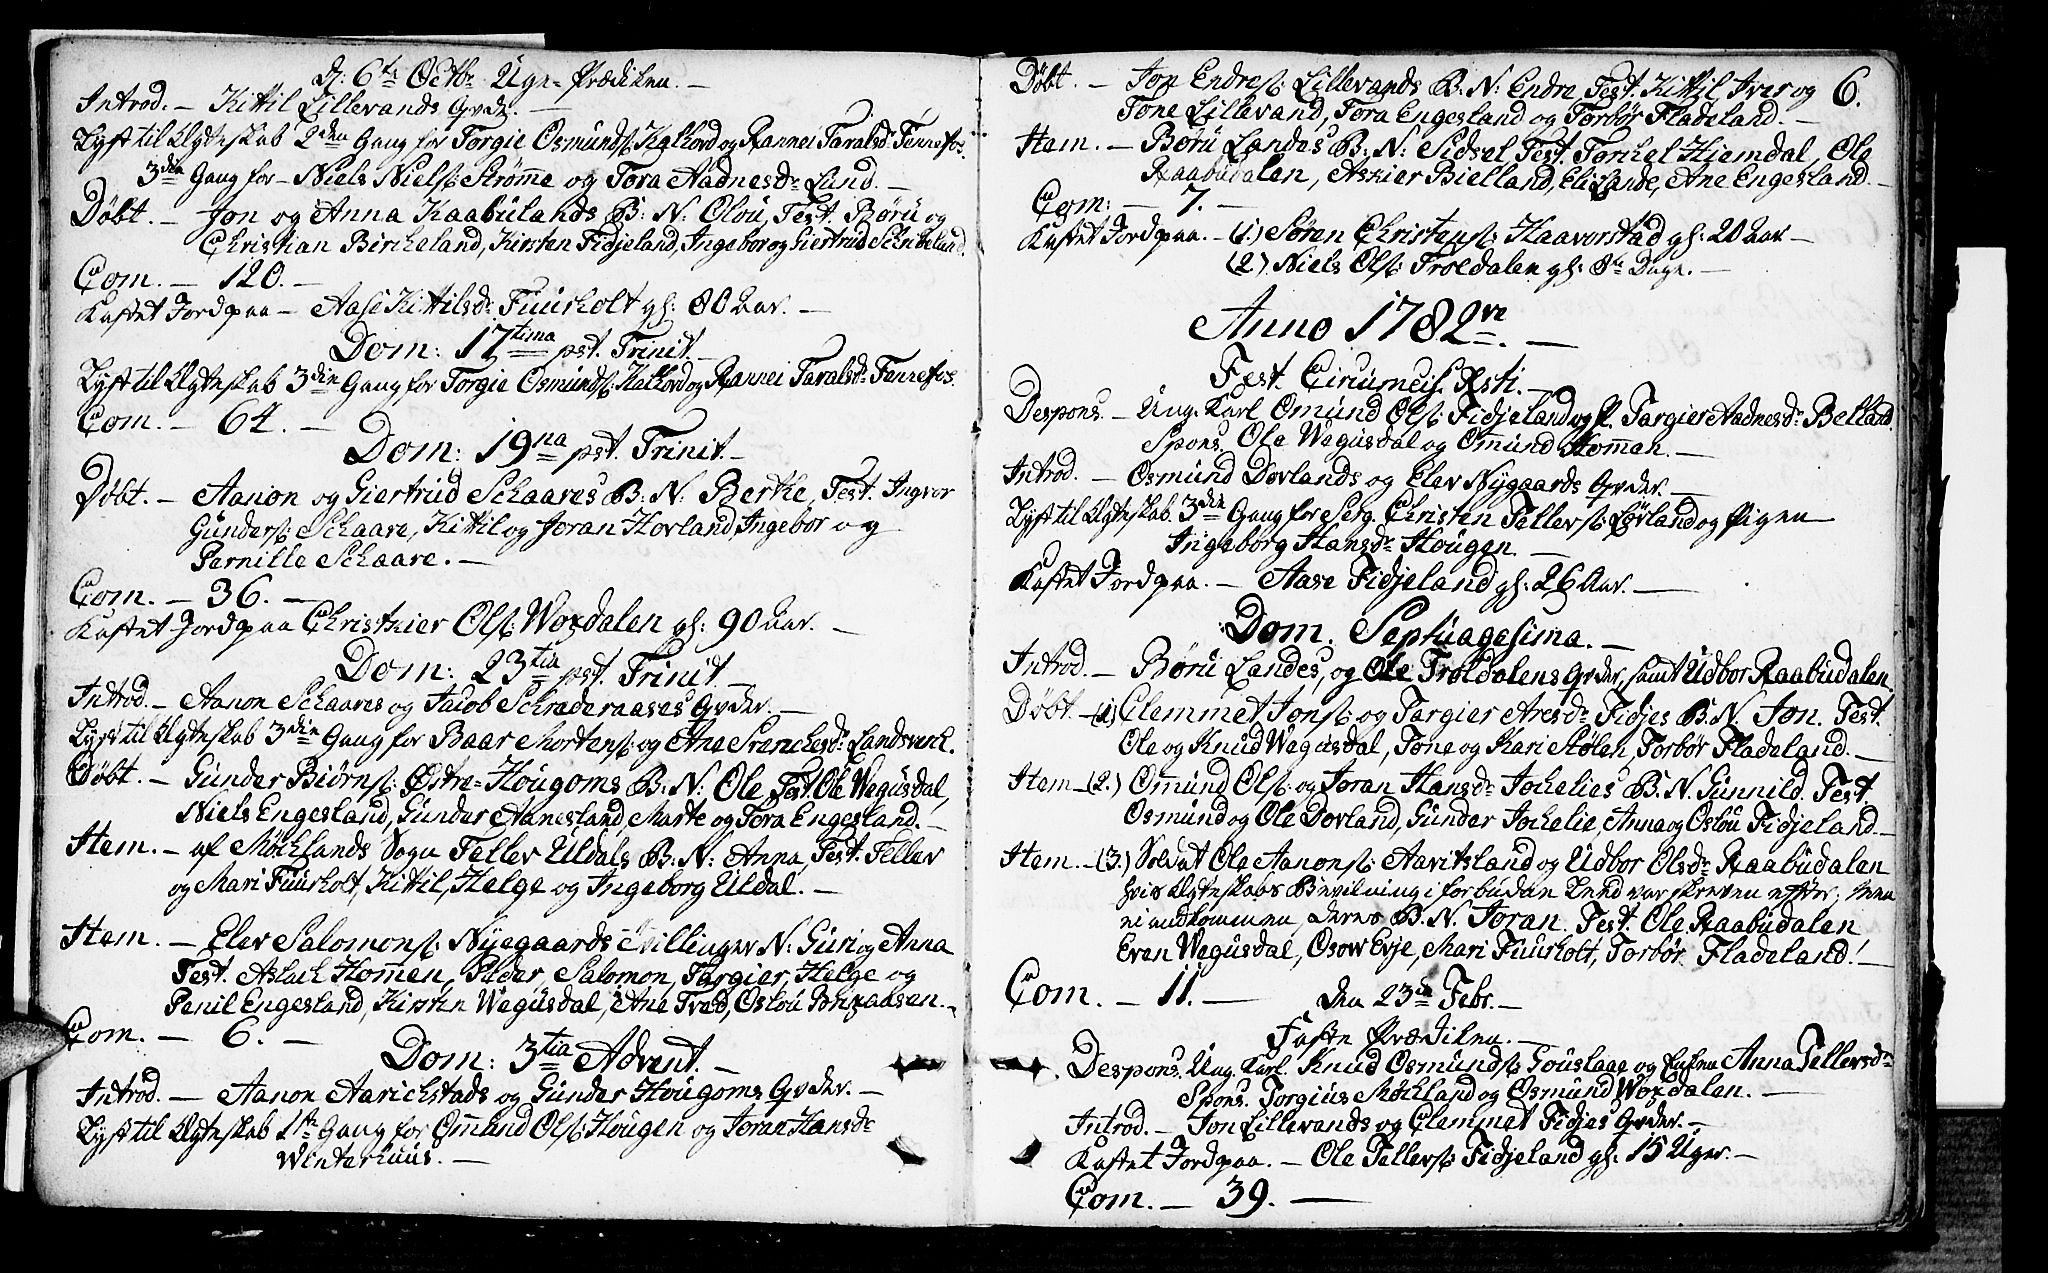 D: 6te Octbr Uge-Prædiken. –
Introd. – Kittil Lillevands Qvder. –
Lyst til Ægteskab 2den Gang for Torgie Osmundss: Kalhord og Rannei Taralsdr Fennefos.
3die Gang for – Niels Nielss: Strømme og Tora Aadnesdr Lund. –
Døbt. – Jon og Anna Kaabulands B: N: Olou, Test. Børu og
Christian Bircheland, Kirsten Fidjeland, Ingebor og Giertrud
Com. – 120. –
Kastet Jord paa – Aase Kittilsdr Fuusholt gl: 80 Aar. –
Dom: 17tima pst. Trinit. –
Lyst til Ægteskab 3die Gang for Torgie Osmundss: Kalhord og Rannei Taralsdr Fennefos.
Com. – 64. –
Dom: 19na pst. Trinit. –
Døbt. – Aanon og Giertrud Schaares B: N: Berthe, Test. Ingvor
Gunderss: Schaare, Kittil og Joran Hovland, Ingebor og
Pernille Schaare. –
Com. – 36. –
Kastet Jord paa Christhier Olss: Woxdalen gl: 90 Aar. –
Dom: 23tia pst. Trinit –
Introd. – Aanon Schaares og Jacob Schraderaases Qvder. –
Lyst til Ægteskab 3die Gang for Baar Mortenss: og Ane Landsverk.
Døbt. – Gunder Biørnss: Østre-Hougoms B: N: Ole Test. Ole Wegusdal,
Niels Engesland, Gunder Aanesland, Marte og Tora Engesland. –
Item. – af Møchlands Sogn Teller Uldals B: N: Anna, Test. Teller
og Mari Fuusholt, Kittil, Helge og Ingeborg Uldal. –
Item. – Elev Salomonss: Nyegaards Tvillinger N: Guri og Anna
Test. Aslach Homen, Peder, Salomon, Targier, Helge og
Penil Engesland, Kirsten Wegusdal, Ane Træd, Oslou –
Com. – 6. –
Dom: 3tia Advent. –
Introd. – Aanon Aarichstads og Gunder Hougoms Qvder. –
Lyst til Ægteskab 1ste Gang for Omund Olss: Hougen og Joran Hansdr
Winterhuus. –
6.
Døbt. – Jon Endress: Lillevands B: N: Endre, Test. Kittil Iver og
Tone Lillevand, Tora Engesland og Torbør Fladeland. –
Item. – Børu Landes B: N: Sidsel Test. Torchel Hiemdal, Ole
Raabudalen, Askier Bielland, Eli Lande, Ane Engesland. –
Com: – 7. –
Kastet Jord paa. – (1.) Søren Christenss: Haavorstad gl: 20 Aar –
(2.) Niels Olss: Troldalen gl: 8te Dage. –
Anno 1782ve. –
Fest. Circumcis. Xsti. –
Despons. – Ung: Karl Omund Olss: Fidjeland og P. Targier Aadnesdr Belland.
Spons. Ole Wegusdal og Omund Homen. –
Introd. – Osmund Dovlands og Elev Nygaards Qvder. –
Lyst til Ægteskab. 3die Gang for Serg. Christen Tellerss: Løvland og Pigen
Ingeborg Hansdr Hougen. –
Kastet Jord paa. – Aase Fidjeland gl: 26 Aar. –
Dom. Septuagesima. –
Introd. – Børu Landes, og Ole Troldalens Qvder, samt Udbor Raabudalen.
Døbt. – (1) Clemmet Jonss: og Targier Aresdr Fidjes B: N. Jon. Test.
Ole og Knud Wegusdal, Tone og Kari Stølen, Torbør Fladeland. –
Item – (2.) Omund Olss: og Joran Hansdr Jochelies B: N. Gunnild. Test
Osmund og Ole Dovland, Gunder Jochelie, Anna og Oslou Fidjeland. –
Item. – (3.) Soldat Ole Aanonss: Aavitsland og Udbor Olsdr Raabudalen
hvis Ægteskabs Bevilning i forbudne Leed var skreven efter, men
ei ankommen, deres B: N. Joran. Test. Ole Raabudalen
Even Wegusdal, Osow Evje, Mari Fuusholt, Torbør Fladeland. –
Com. – 11. –
den 23de Febr. –
Faste Prædiken. –
Despons. Ung. Karl. Knud Osmundss: Gouslaae og Enken Anna Tellersdr
Spons. Torgius Møchland og Osmund Woxdalen. –
Introd. – Jon Lillevands og Clemmet Fidjes Qvder. –
Kastet Jord paa. – Ole Tellerss: Fidjeland gl: 15 Uger. –
Com. – 39. –